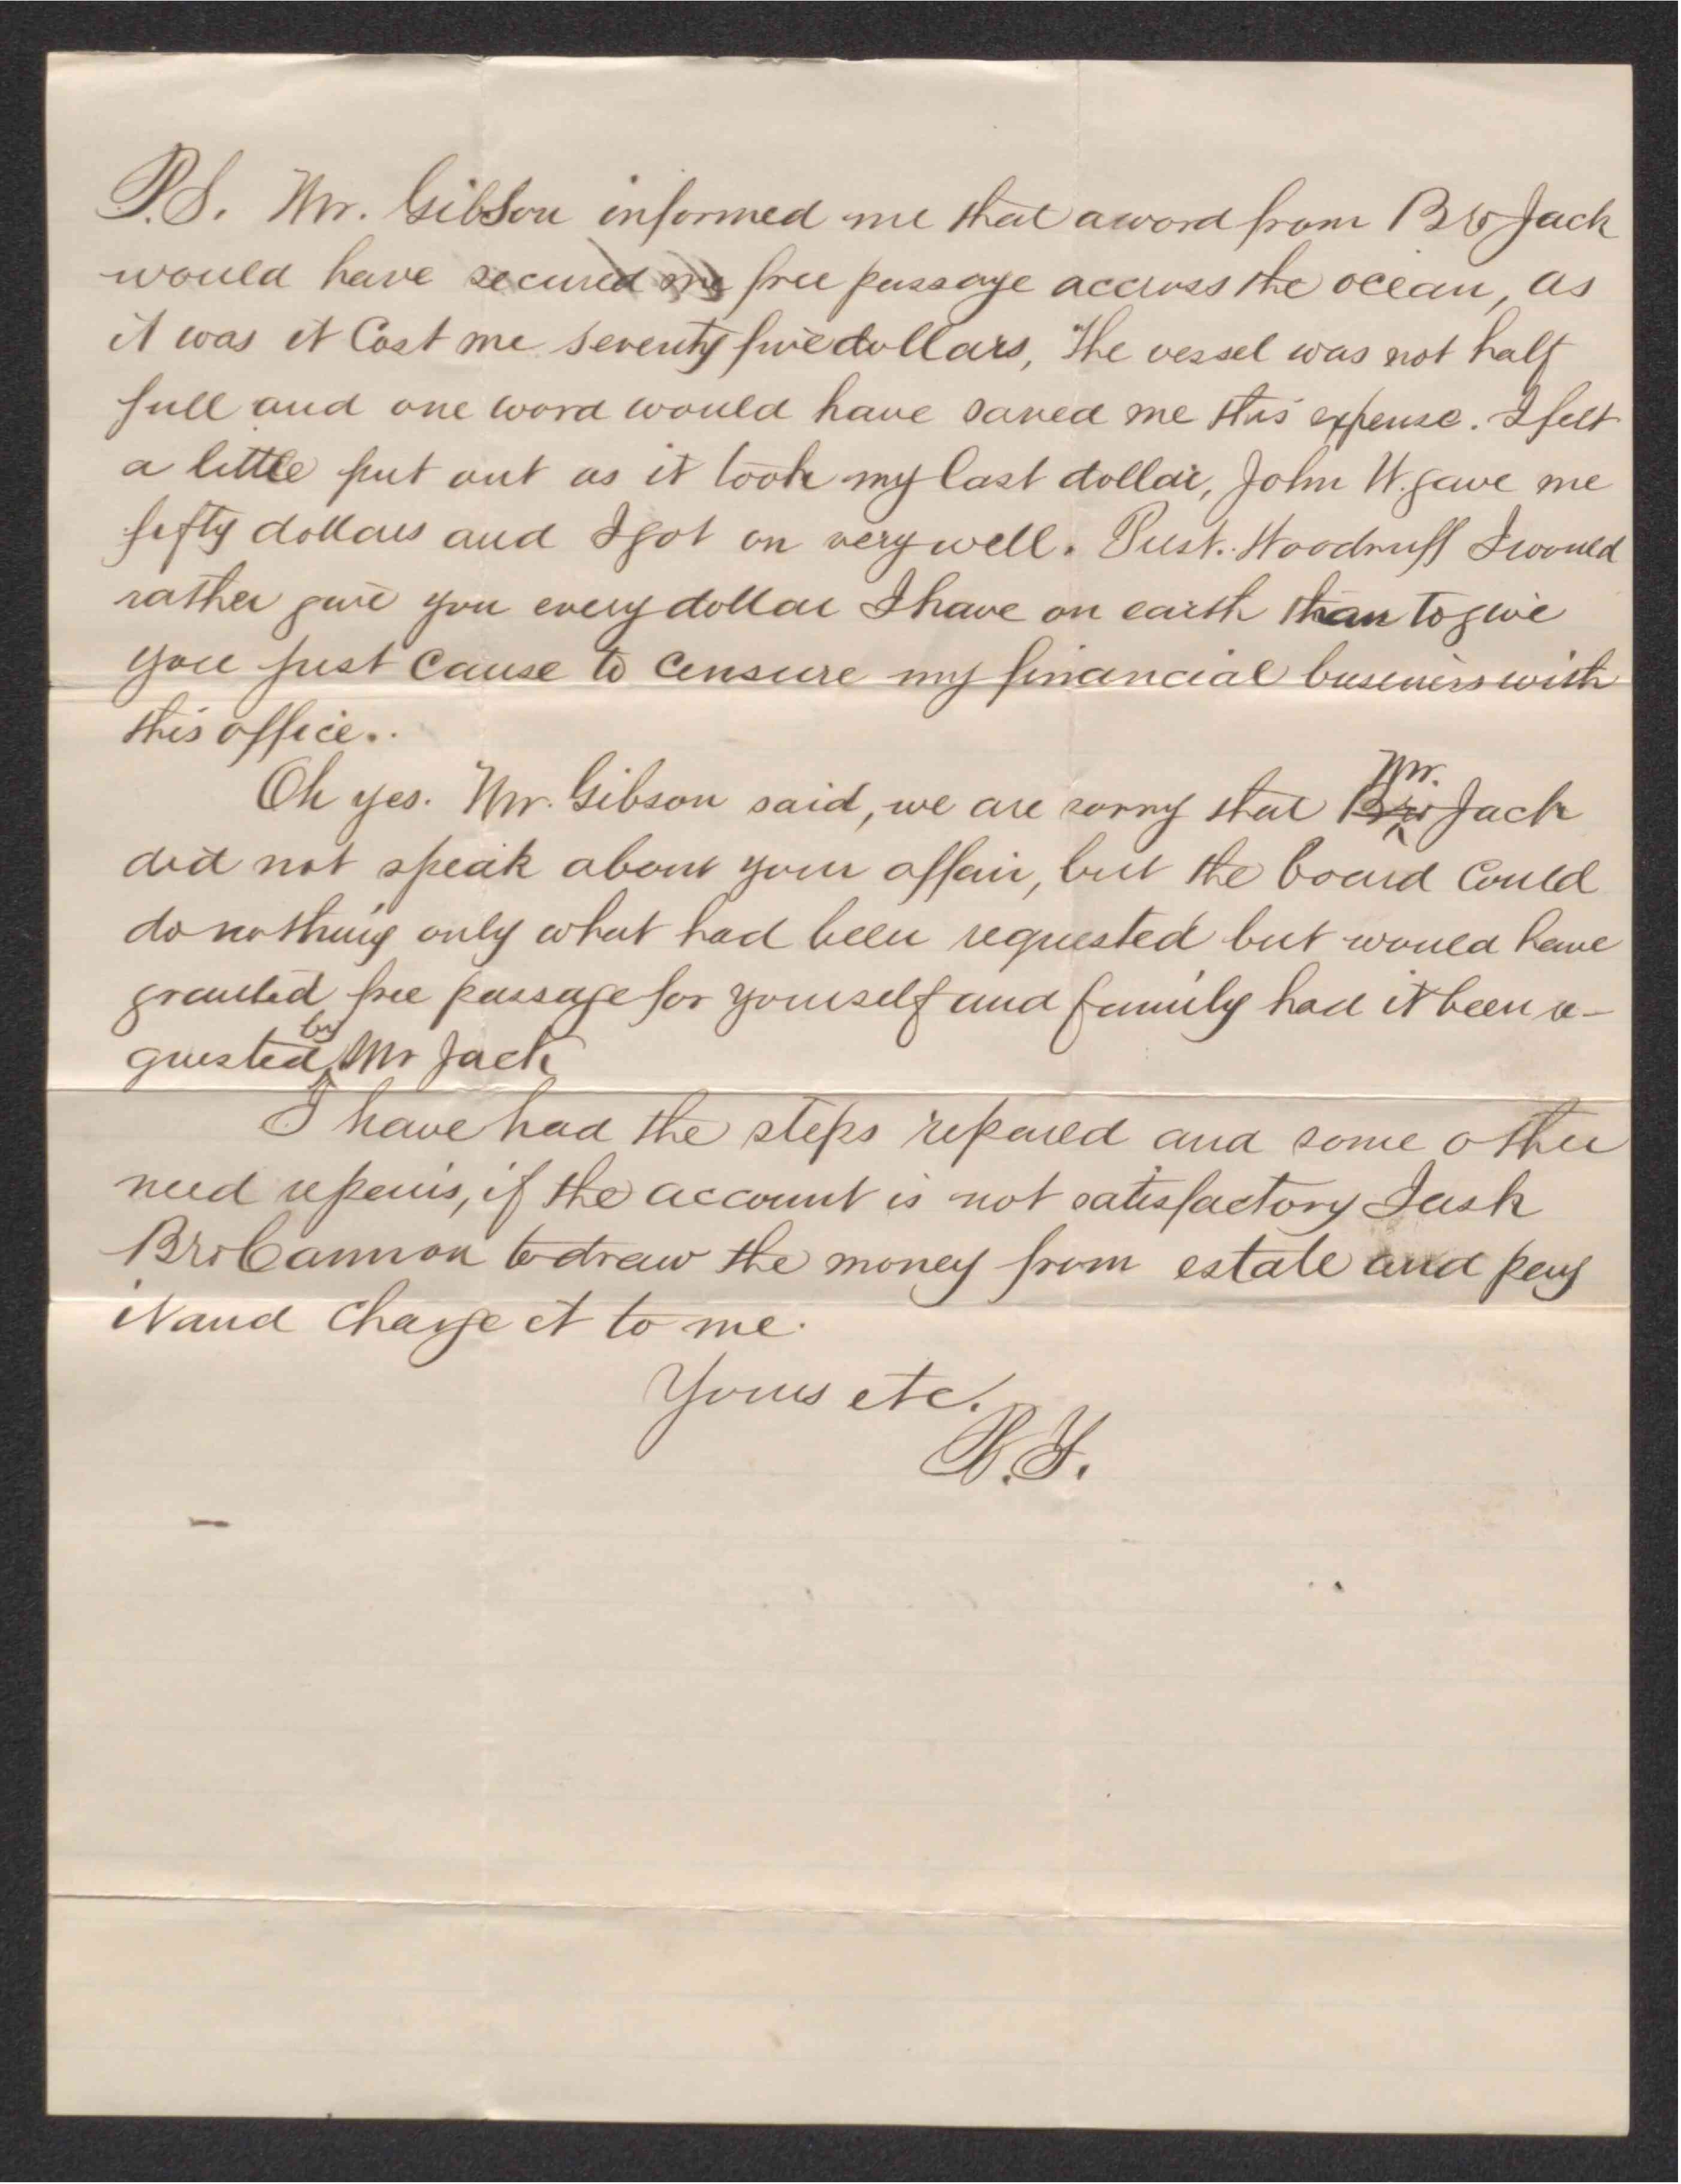 P.S. Mr. Gibson informed me that a word from Bro Jack
would have secured me free passage accross the ocean, as
it was it Cost me seventy five dollars, The vessel was not half
full and one word would have saved me this expense. I felt
a little put out as it took my last dollar, John W. gave me
fifty dollars and I got on very well. Prest. Woodruff I would
rather give you every dollar I have on earth than to give
you just cause to censure my financial business with
this office..
Oh yes. Mr. Gibson said, we are sorry that Bro Mr. Jack
did not speak about your affair, but the board could
do nothing only what had been requested but would have
granted free passage for yourself and family had it been re-
quested by Mr Jack
I have had the steps repared and some other
need repairs, if the account is not satisfactory I ask
Bro Cannon to draw the money from estate and pay
it and charge it to me.
Yours etc.
B.Y.